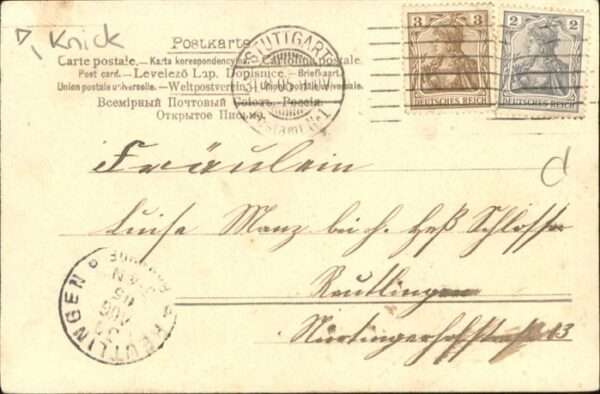 Knick
Postkarte
Carte postale. — Karta korespondencyjna — Cartolina postale.
Post card. — Levelező Lap. Dopisnice. — Briefkaart.
Union postale universelle. — Weltpostverein. — Unione postale universale.
Всемірный Почтовый Союзъ. Россія.
Открытое Письмо.
STUTTGART
3 3
DEUTSCHES REICH
2 2
DEUTSCHES REICH
Fräulein
Luise Manz bei H. Heß Schlosser
Reutlingen
Nürtingerhofstraße 13
REUTLINGEN
AUG
05